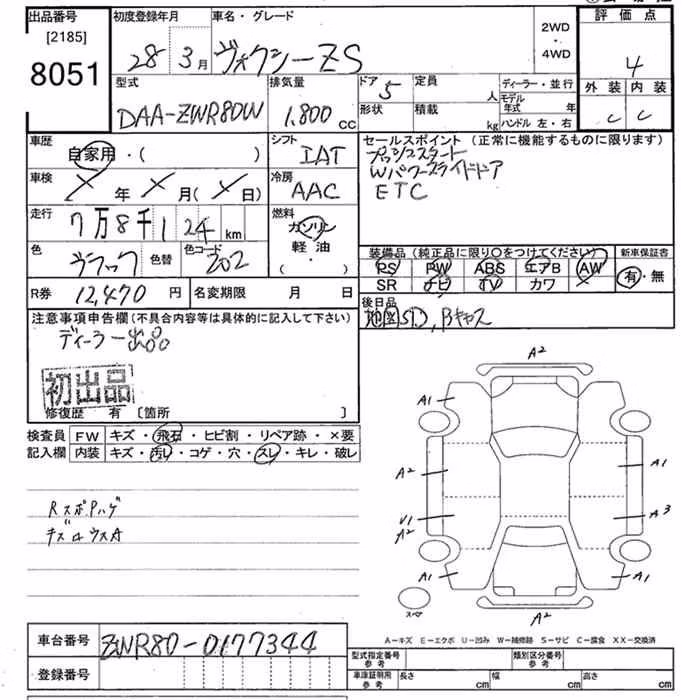 出品番号
[2185]
8051
初度登録年月
28 3月
車名・グレード
ヴォクシーZS
2WD
・
4WD
評価点
4
外装 内装
C C
型式
DAA-ZWR80W
排気量
1,800 cc
ドア 5
形状
定員 人
積載 kg
ディーラー・並行
モデル年式 年
ハンドル 左・右
車歴
自家用・( )
シフト
IAT
車検
× 年 × 月(×日)
冷房
AAC
走行
7万8千124km
燃料
ガソリン
軽油
( ・ )
色
ブラック
色替
色コード
202
R券 12,470 円
名変期限 月 日
セールスポイント (正常に機能するものに限ります)
プッシュスタート
Wパワースライドドア
ETC
装備品(純正品に限り○をつけてください)
PS PW ABS エアB AW
SR ナビ TV カワ ×
新車保証書
有・無
後日品
地図SD, Bキャス
注意事項申告欄(不具合内容等は具体的に記入して下さい)
ディーラー出品
初出品
修復歴 有 [箇所 ]
検査員 FW キズ・飛石・ヒビ割・リペア跡・×要
記入欄 内装 キズ・汚レ・コゲ・穴・スレ・キレ・破レ
RスポPハゲ
キズロウスA
A2
A1
A2
A1
U1
A2
A3
A1
A1
スペア
A2
A-キズ E-エクボ U-凹み W-補修跡 S-サビ C-腐食 XX-交換済
車台番号 ZWR80-0177344
登録番号
型式指定番号
参考
類別区分番号
参考
車庫証明用
参考
長さ cm
幅 cm
高さ cm